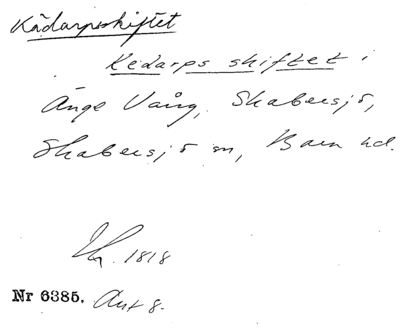 Kädarpsskiftet
Kedarps skiftet i
Änge Vång, Skabersjö,
Skabersjö sn, Bara hd.
1818
Nr 6385. Akt 8.